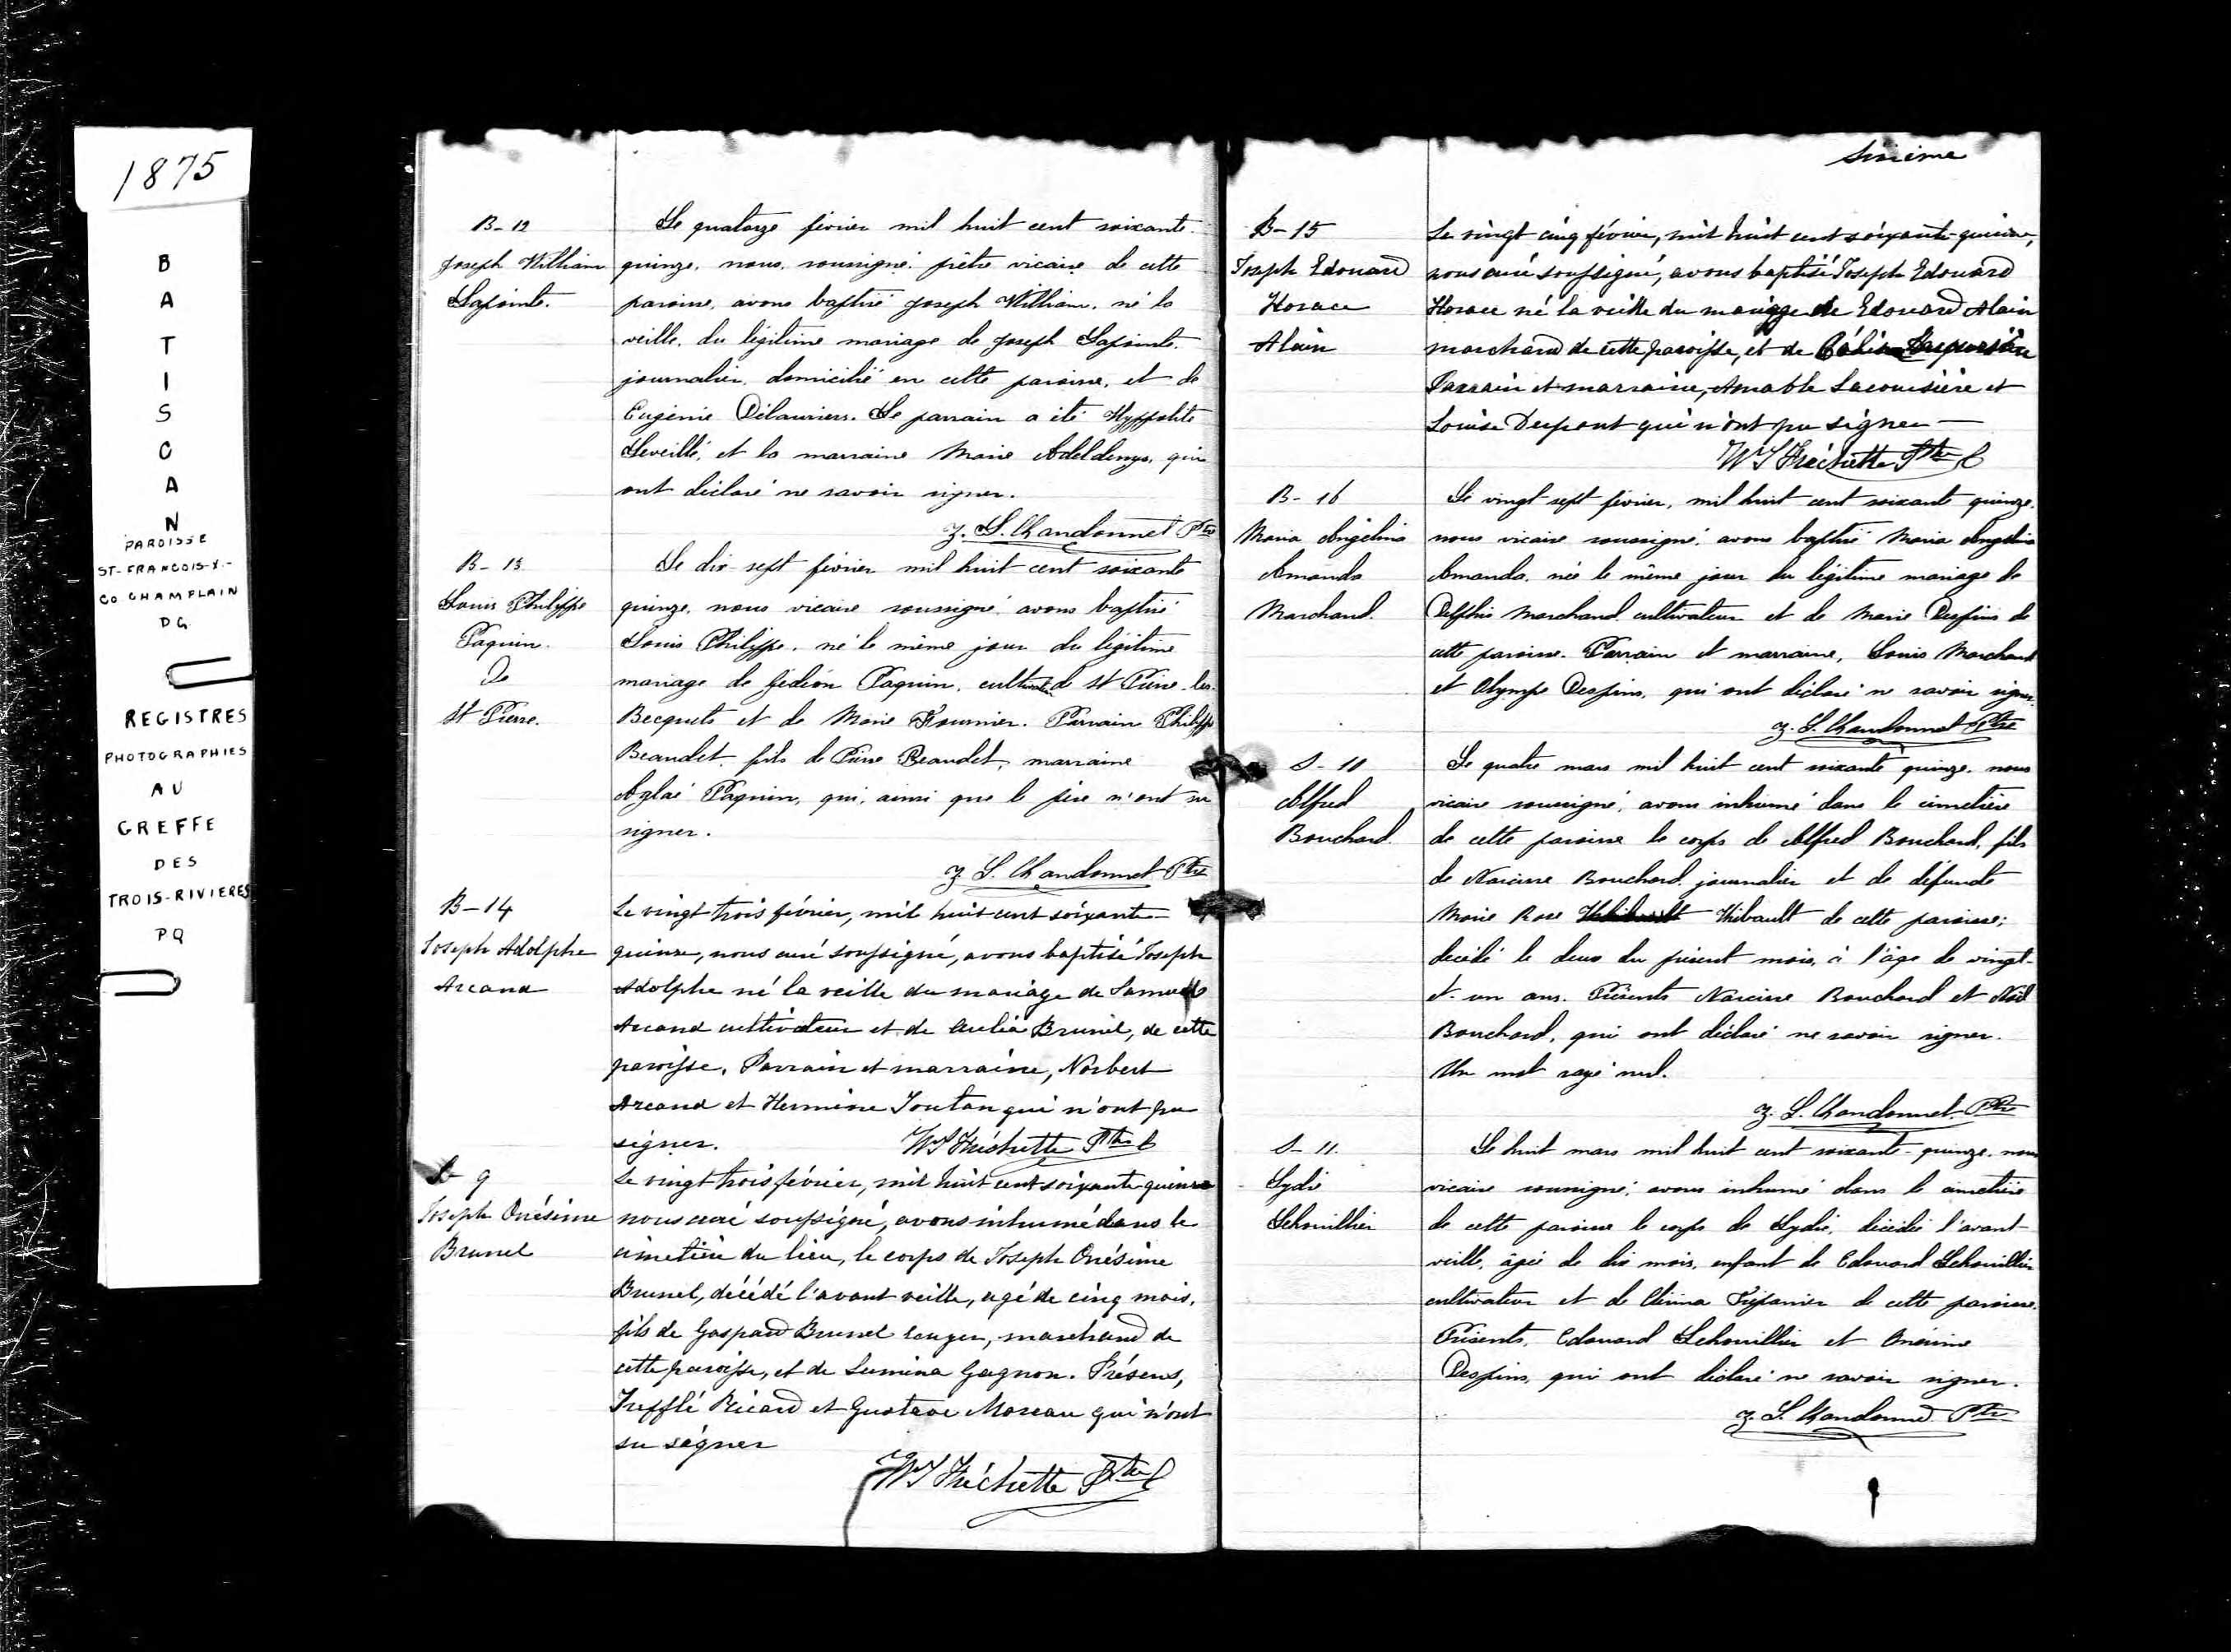 1875
B
A
T
I
S
C
A
N
PAROISSE
ST-FRANCOIS-X.-
CO CHAMPLAIN
DG
REGISTRES
PHOTOGRAPHIES
AU
GREFFE
DES
TROIS-RIVIERES
PQ
B-12
Joseph William
Lapointe.
Le quatorze février mil huit cent soixante
quinze, nous, soussigné, prêtre vicaire de cette
paroisse, avons baptisé Joseph William, né la
veille, du légitime mariage de Joseph Lapointe,
journalier, domicilié en cette paroisse, et de
Eugénie Délauriers. Le parrain a été Hyppolite
Leveillé, et la marraine Marie qui
ont déclaré ne savoir signer.
Z. L. Chandonnet Ptre
B-13
Louis Philippe
Paquin.
De
St Pierre.
Le dix-sept février mil huit cent soixante
quinze, nous vicaire soussigné, avons baptisé
Louis Philippe, né le même jour du légitime
mariage de Gédéon Paquin, cultivateur de St Pierre-les-
Becquets et de Marie Fournier. Parrain Philippe
Beaudet fils de Pierre Beaudet, marraine
Aglaé Paquin, qui, ainsi que le père n'ont su
signer.
Z. L. Chandonnet Ptre
B-14
Joseph Adolphe
Arcand
Le vingt trois février, mil huit cent soixante
quinze, nous curé soussigné, avons baptisé Joseph
Adolphe né la veille du mariage de Samuel
Arcand cultivateur et de Brunel, de cette
paroisse. Parrain et marraine, Norbert
Arcand et Hermine Toutan qui n'ont pu
signer. W S Fréchette Ptre C
S- 9
Joseph Onésime
Brunel
Le vingt trois février, mil huit cent soixante quinze
nous curé soussigné, avons inhumé dans le
cimetière du lieu, le corps de Joseph Onésime
Brunel, décédé l'avant veille, agé de cinq mois,
fils de Gaspard Brunel marchand de
cette paroisse, et de Lumina Gagnon. Présens,
Trefflé Ricard et Gustave Moreau qui n'ont
su signer
W S Fréchette Ptre C
Sixième
B-15
Joseph Edouard
Horace
Alain
Le vingt cinq février, mil huit cent soixante-quinze,
nous curé soussigné, avons baptisé Joseph Edouard
Horace né la veille du mariage de Edouard Alain
marchand de cette paroisse, et de
Parrain et marraine, Amable Lacoursière et
Louise Dupont qui n'ont pu signer —
W S Fréchette Ptre C
B- 16
Maria Angelina
Amanda
Marchand.
Le vingt sept février, mil huit cent soixante quinze,
nous vicaire soussigné, avons baptisé Maria Angelina
Amanda, née le même jour du légitime mariage de
Delphis Marchand cultivateur et de Marie Despins de
cette paroisse. Parrain et marraine, Louis Marchand
et Olympe Despins, qui ont déclaré ne savoir signer.
Z. L. Chandonnet Ptre
S- 10
Alfred
Bouchard.
Le quatre mars mil huit cent soixante quinze, nous
vicaire soussigné, avons inhumé dans le cimetière
de cette paroisse le corps de Alfred Bouchard, fils
de Narcisse Bouchard journalier et de défunte
Marie Rose Thibault de cette paroisse;
décédé le deux du présent mois, à l'âge de vingt-
et-un ans. Présents Narcisse Bouchard et Noël
Bouchard, qui ont déclaré ne savoir signer.
Un mot rayé nul.
Z. L. Chandonnet Ptre
S- 11.
Lydie
Lehouillier
Le huit mars mil huit cent soixante-quinze, nous
vicaire soussigné, avons inhumé dans le cimetière
de cette paroisse le corps de Lydie, décédée l'avant-
veille, âgée de dix mois, enfant de Edouard Lehouillier
cultivateur et de Elmina Trépanier de cette paroisse.
Présents, Edouard Lehouillier et Onésime
Despins, qui ont déclaré ne savoir signer.
Z. L. Chandonnet Ptre